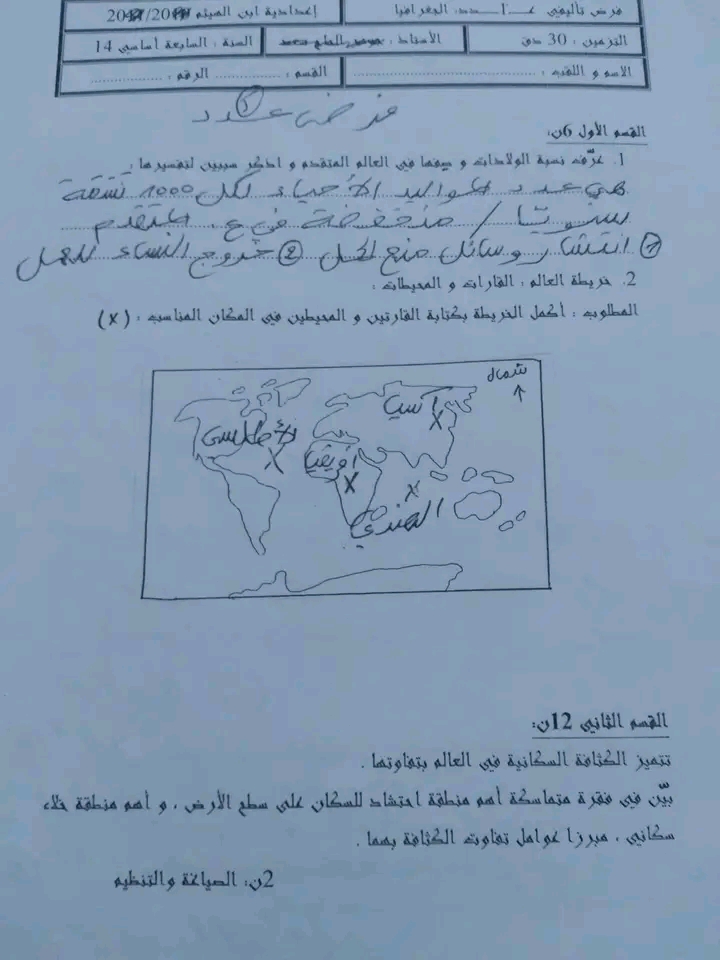 فرض تأليفي عـ1ـدد: الجغرافيا
إعدادية ابن الهيثم
التزمين : 30 دق
الأستاذ :
السنة : السابعة أساسي 14
الاسم و اللقب :
القسم :
الرقم :
فرض عدد
القسم الأول 6ن:
1. عرّف نسبة الولادات و صفها في العالم المتقدم و اذكر سببين لتفسيرها :
هي عدد المواليد الأحياء لكل 1000 نسمة
سنويا / منخفضة في ع. المتقدم
1 انتشار وسائل منع الحمل 2 خروج النساء للعمل
2. خريطة العالم : القارات و المحيطات :
المطلوب : أكمل الخريطة بكتابة القارتين و المحيطين في المكان المناسب : (x)
شمال
آسيا
x
الأطلسي
x
افريقيا
x
x
الهندي
القسم الثاني 12ن:
تتميز الكثافة السكانية في العالم بتفاوتها .
بيّن في فقرة متماسكة أهم منطقة احتشاد للسكان على سطح الأرض ، و أهم منطقة خلاء
سكاني ، مبرزا عوامل تفاوت الكثافة بهما .
2ن: الصياغة والتنظيم